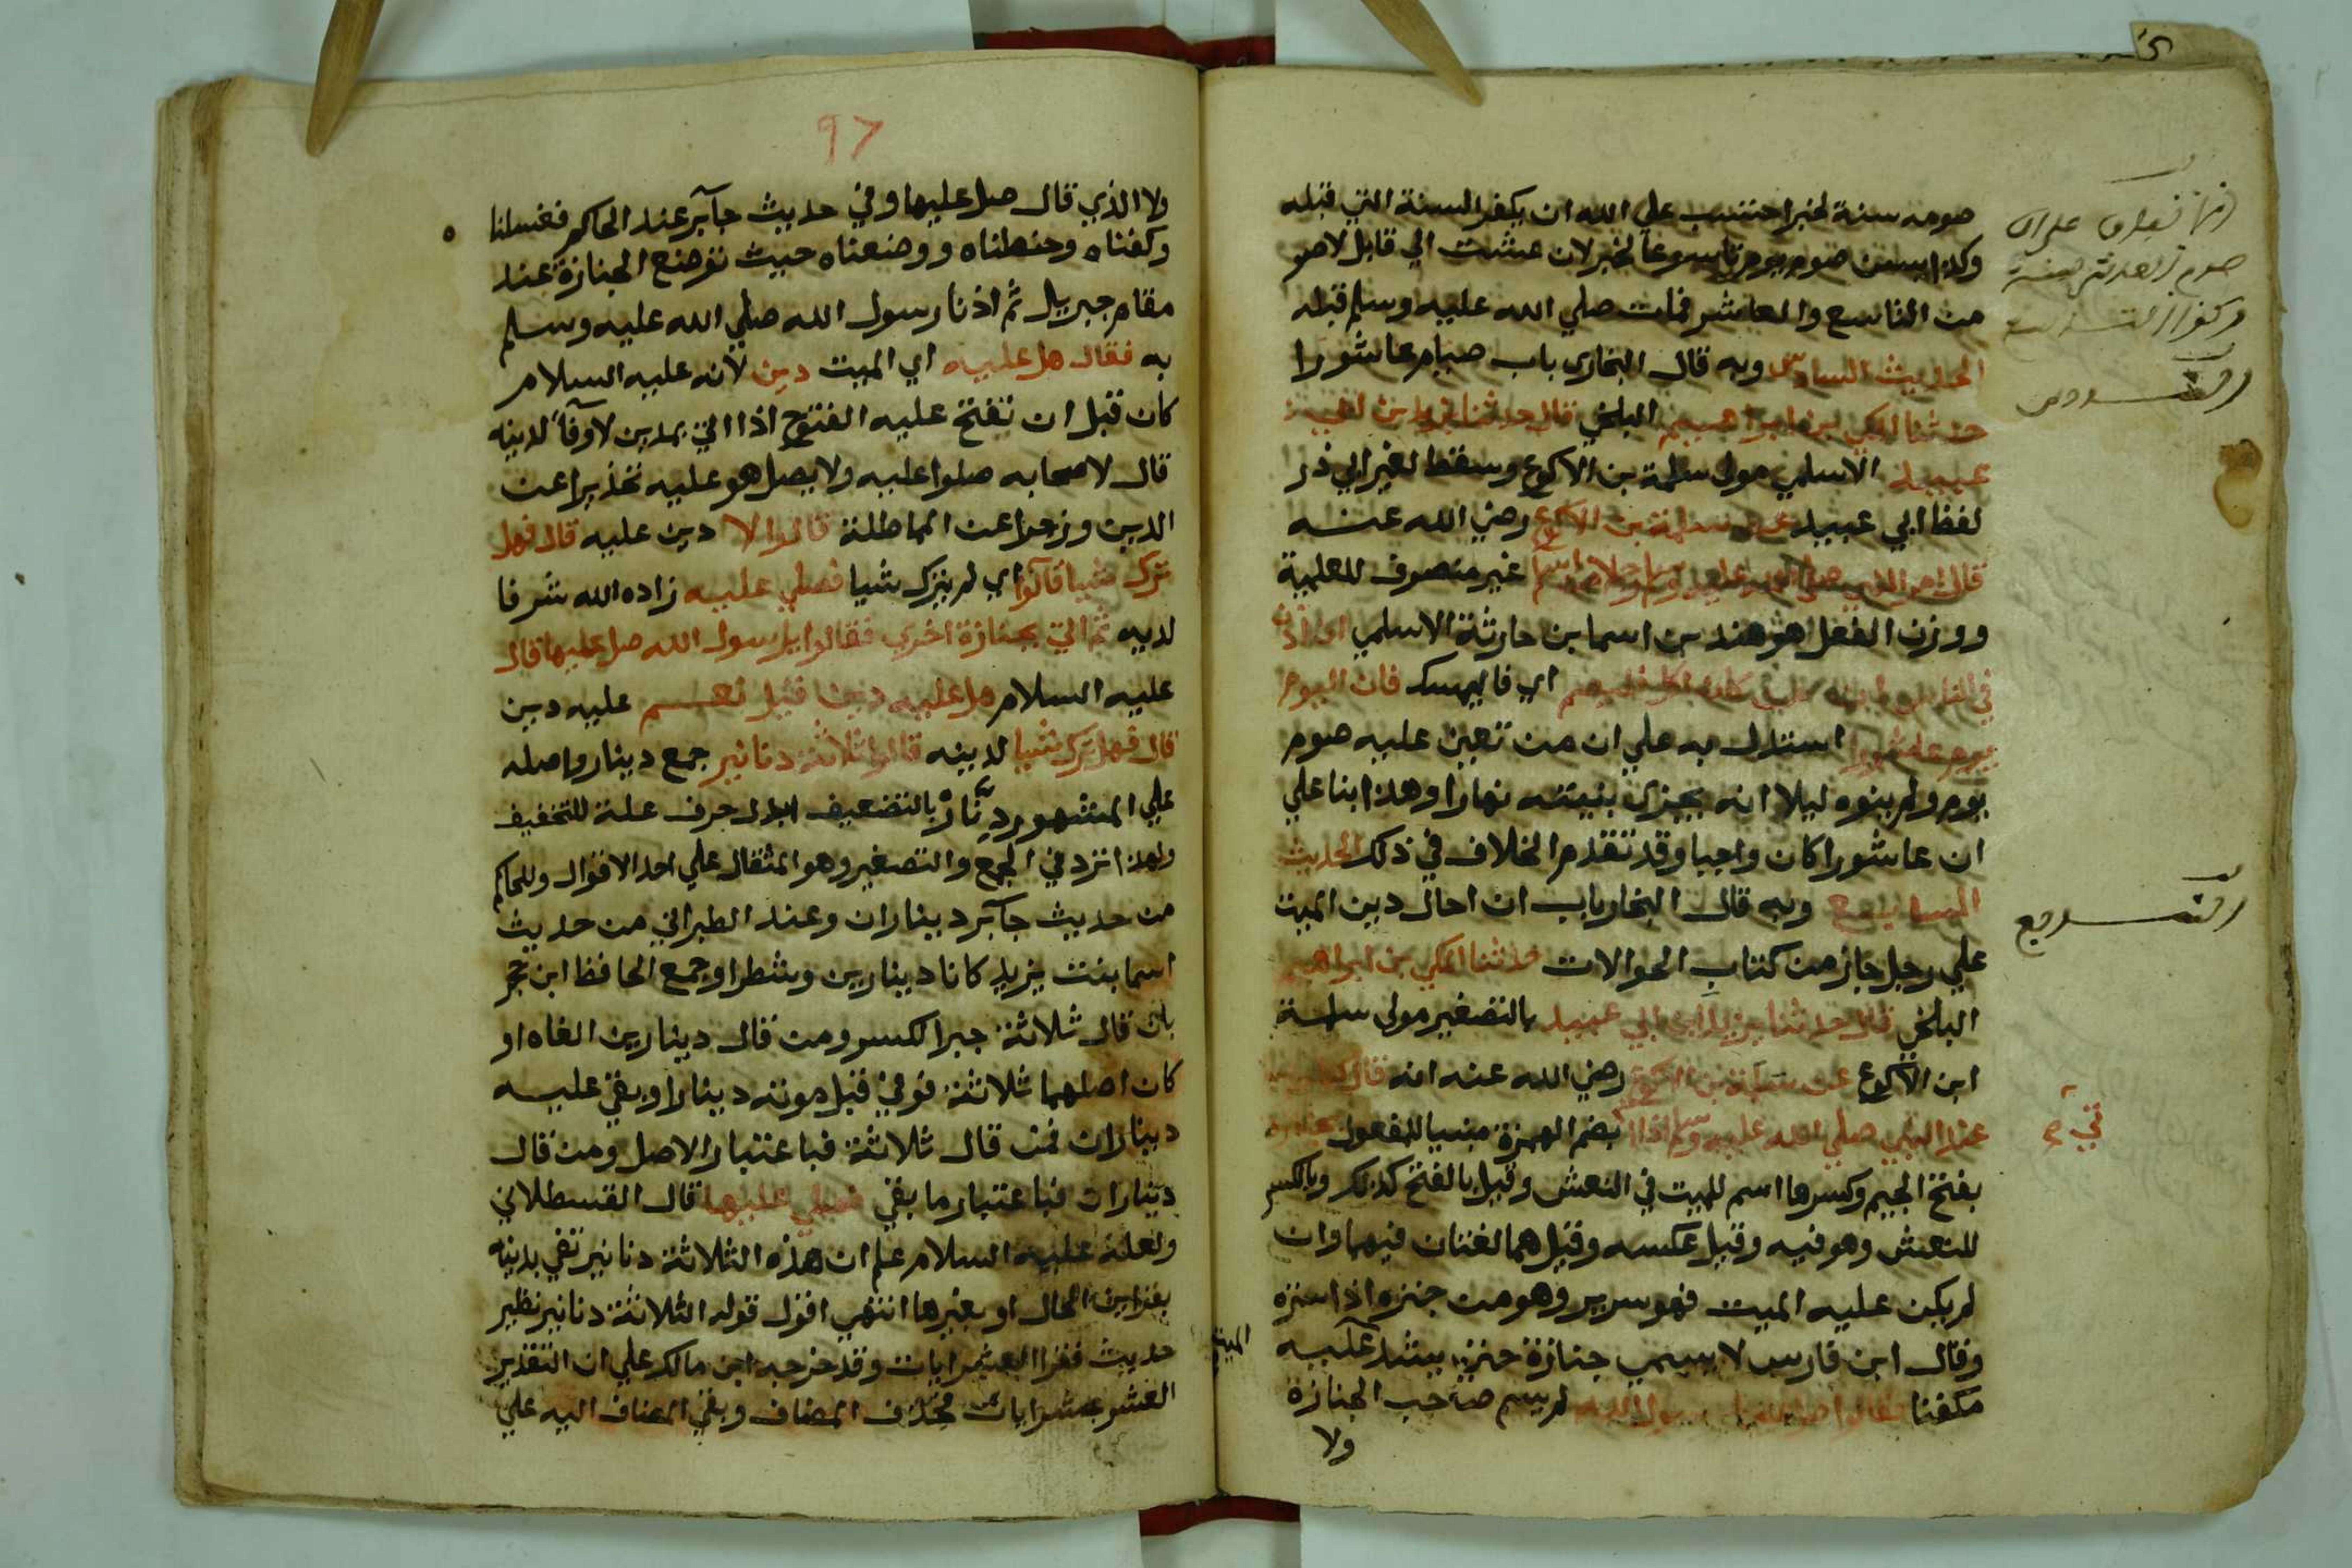 صومه سنة لخبر احتسب علي الله ان يكفر السنة التي قبله
وكذا يسن صوم يوم تاسوعا لخبر لان عشت الي قابل لاصو
من التاسع والعاشر فمات صلي الله عليه وسلم قبله
الحديث السادس وبه قال البخاري باب صيام عاشورا
حدثنا المكي بن ابراهيم البلخي قال حدثنا يزيد بن ابي
عبيد الاسلمي مولي سلمة بن الاكوع وسقط لغير ابي ذر
لفظ ابي عبيد عن سلمة بن الاكوع رضي الله عنه
قال امر النبي صلي الله عليه وسلم رجلا من اسلم غير منصرف للعلمية
ووزن الفعل هو هند بن اسما بن حارثة الاسلمي ان اذن
في الناس ان من كان اكل فليصم اي فاليمسك فان اليوم
يوم عاشورا استدل به علي ان من تعين عليه صوم
يوم ولم ينوه ليلا انه يجزي بنيته نهارا وهذا بنا علي
ان عاشورا كان واجبا وقد تقدم الخلاف في ذلك الحديث
السابع وبه قال البخاري باب ان احال دين الميت
علي رجل جاز من كتاب الحوالات حدثنا المكي بن ابراهيم
البلخي قال حدثنا يزيد ابن ابي عبيد بالتصغير مولي سلمة
ابن الاكوع عن سلمة بن الاكوع رضي الله عنه انه قال كنا
عند النبي صلي الله عليه وسلم اذا بضم الهمزة مبنيا للمفعول بجنازة
بفتح الجيم وكسرها اسم للميت في النعش وقيل بالفتح كذلك وبالكسر
للنعش وهو فيه وقيل عكسه وقيل هما لغتان فيهما وان
لم يكن عليه الميت فهو سرير وهو من جنزه اذا ستره
وقال ابن فارس لا يسمي جنازة حتي يشد عليه الميت
مكفنا فقالوا لم يسم صاحب الجنازة
ولا
السادس
السابع
٩٧
ولا الذي قال صل عليها وفي حديث جابر عند الحاكم فغسلنا
وكفناه وحنطناه ووضعناه حيث توضع الجنازة عند
مقام جبريل ثم اذنا رسول الله صلي الله عليه وسلم
به فقال هل عليه اي الميت دين لانه عليه السلام
كان قبل ان تفتح عليه الفتوح اذا اتي بمدين لا وفاء لدينه
قال لاصحابه صلوا عليه ولا يصل هو عليه تحذيرا عن
الدين وزجرا عن المماطلة قالوا لا دين عليه قال فهل
ترك شيا قالوا اي لم يترك شيا فصلي عليه زاده الله شرفا
لديه ثم اتي بجنازة اخري فقالوا يا رسول الله صل عليها قال
عليه السلام هل عليه دين قيل نعم عليه دين
قال فهل ترك شيا لدينه قالوا ثلاثة دنانير جمع دينار واصله
علي المشهور دنار بالتضعيف ابدل حرف علة للتخفيف
ولهذا ترد في الجمع والتصغير وهو المثقال علي احد الاقوال وللحاكم
من حديث جابر ديناران وعند الطبراني من حديث
اسما بنت يزيد كانا دينارين وشطرا وجمع الحافظ ابن حجر
بان قال ثلاثة جبر الكسر ومن قال دينارين الغاه او
كان اصلهما ثلاثة فوفي قبل موته دينارا وبقي عليه
ديناران فمن قال ثلاثة فباعتبار الاصل ومن قال
ديناران فباعتبار ما بقي فصلي عليها قال القسطلاني
ولعله عليه السلام علم ان هذه الثلاثة دنانير تفي بدينه
بقراين الحال او بغيرها انتهي اقول قوله الثلاثة دنانير نظير
حديث فقرا العشر ايات وقد خرجه ابن مالك علي ان التقدير
العشر عشر ايات فحذف المضاف وبقي المضاف اليه علي